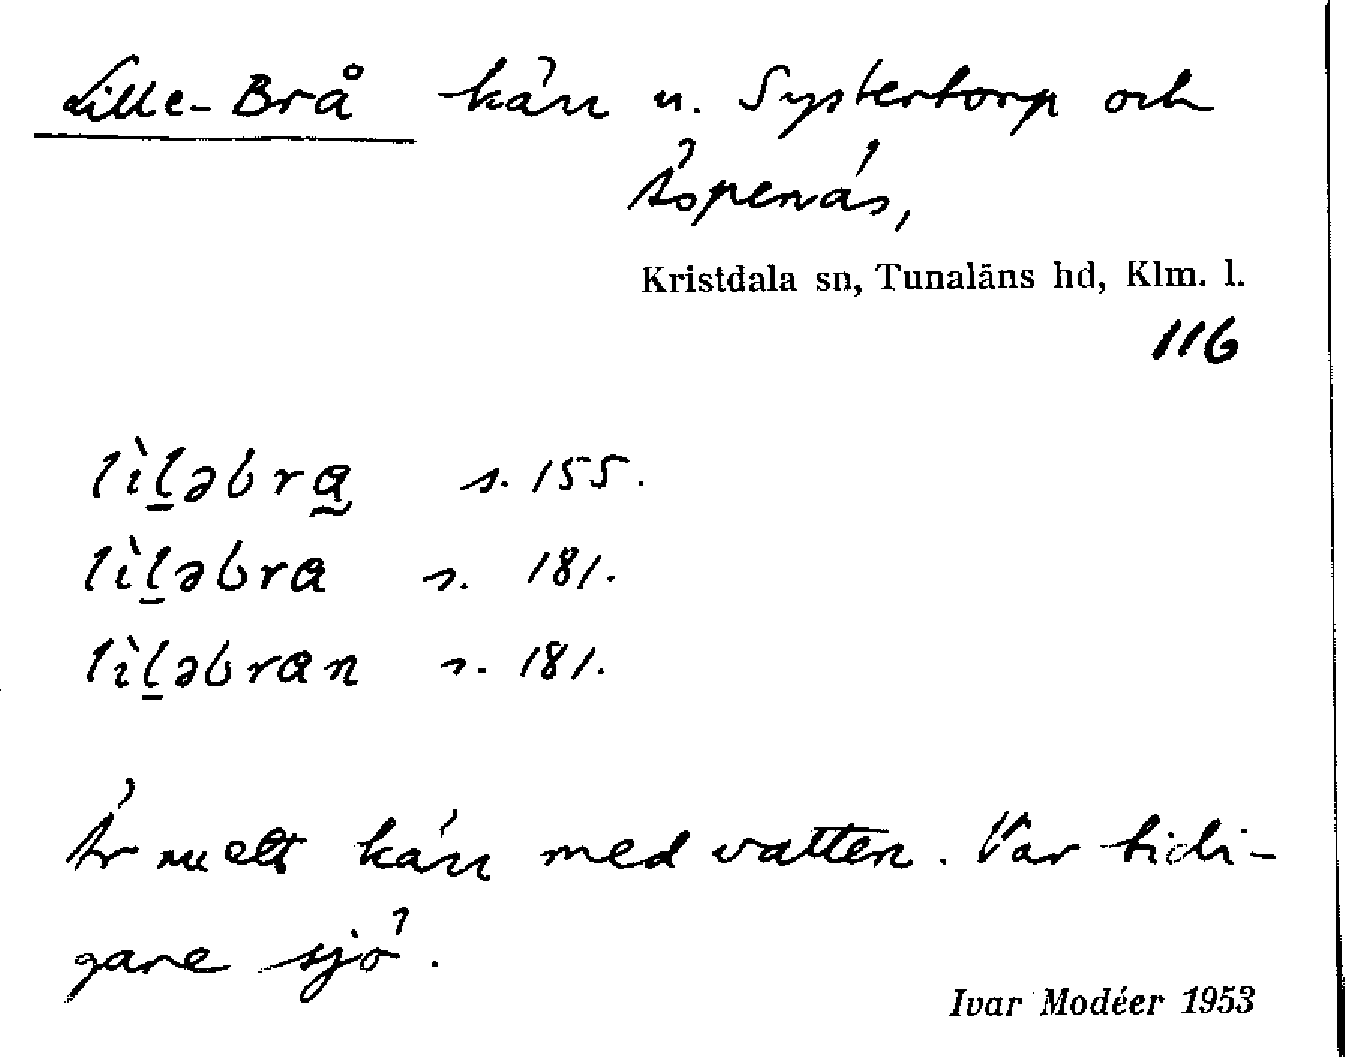 Lille-Brå kärr u. Systertorp och
Äspenäs,
Kristdala sn, Tunaläns hd, Klm. l.
116
lìḻəbra̰ s. 155.
lìḻəbra s. 181.
lìḻəbran s. 181.
Är nu ett kärr med vatten. Var tidi-
gare sjö.
Ivar Modéer 1953